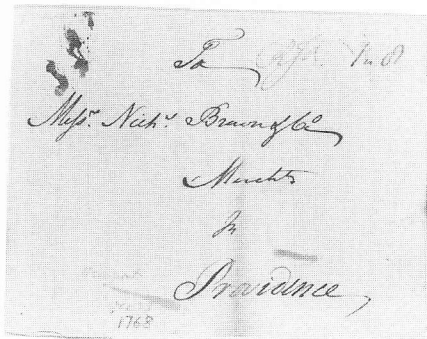 To
Messrs. Nichs. Brown & Co
Merchts
In
Providence,
1768